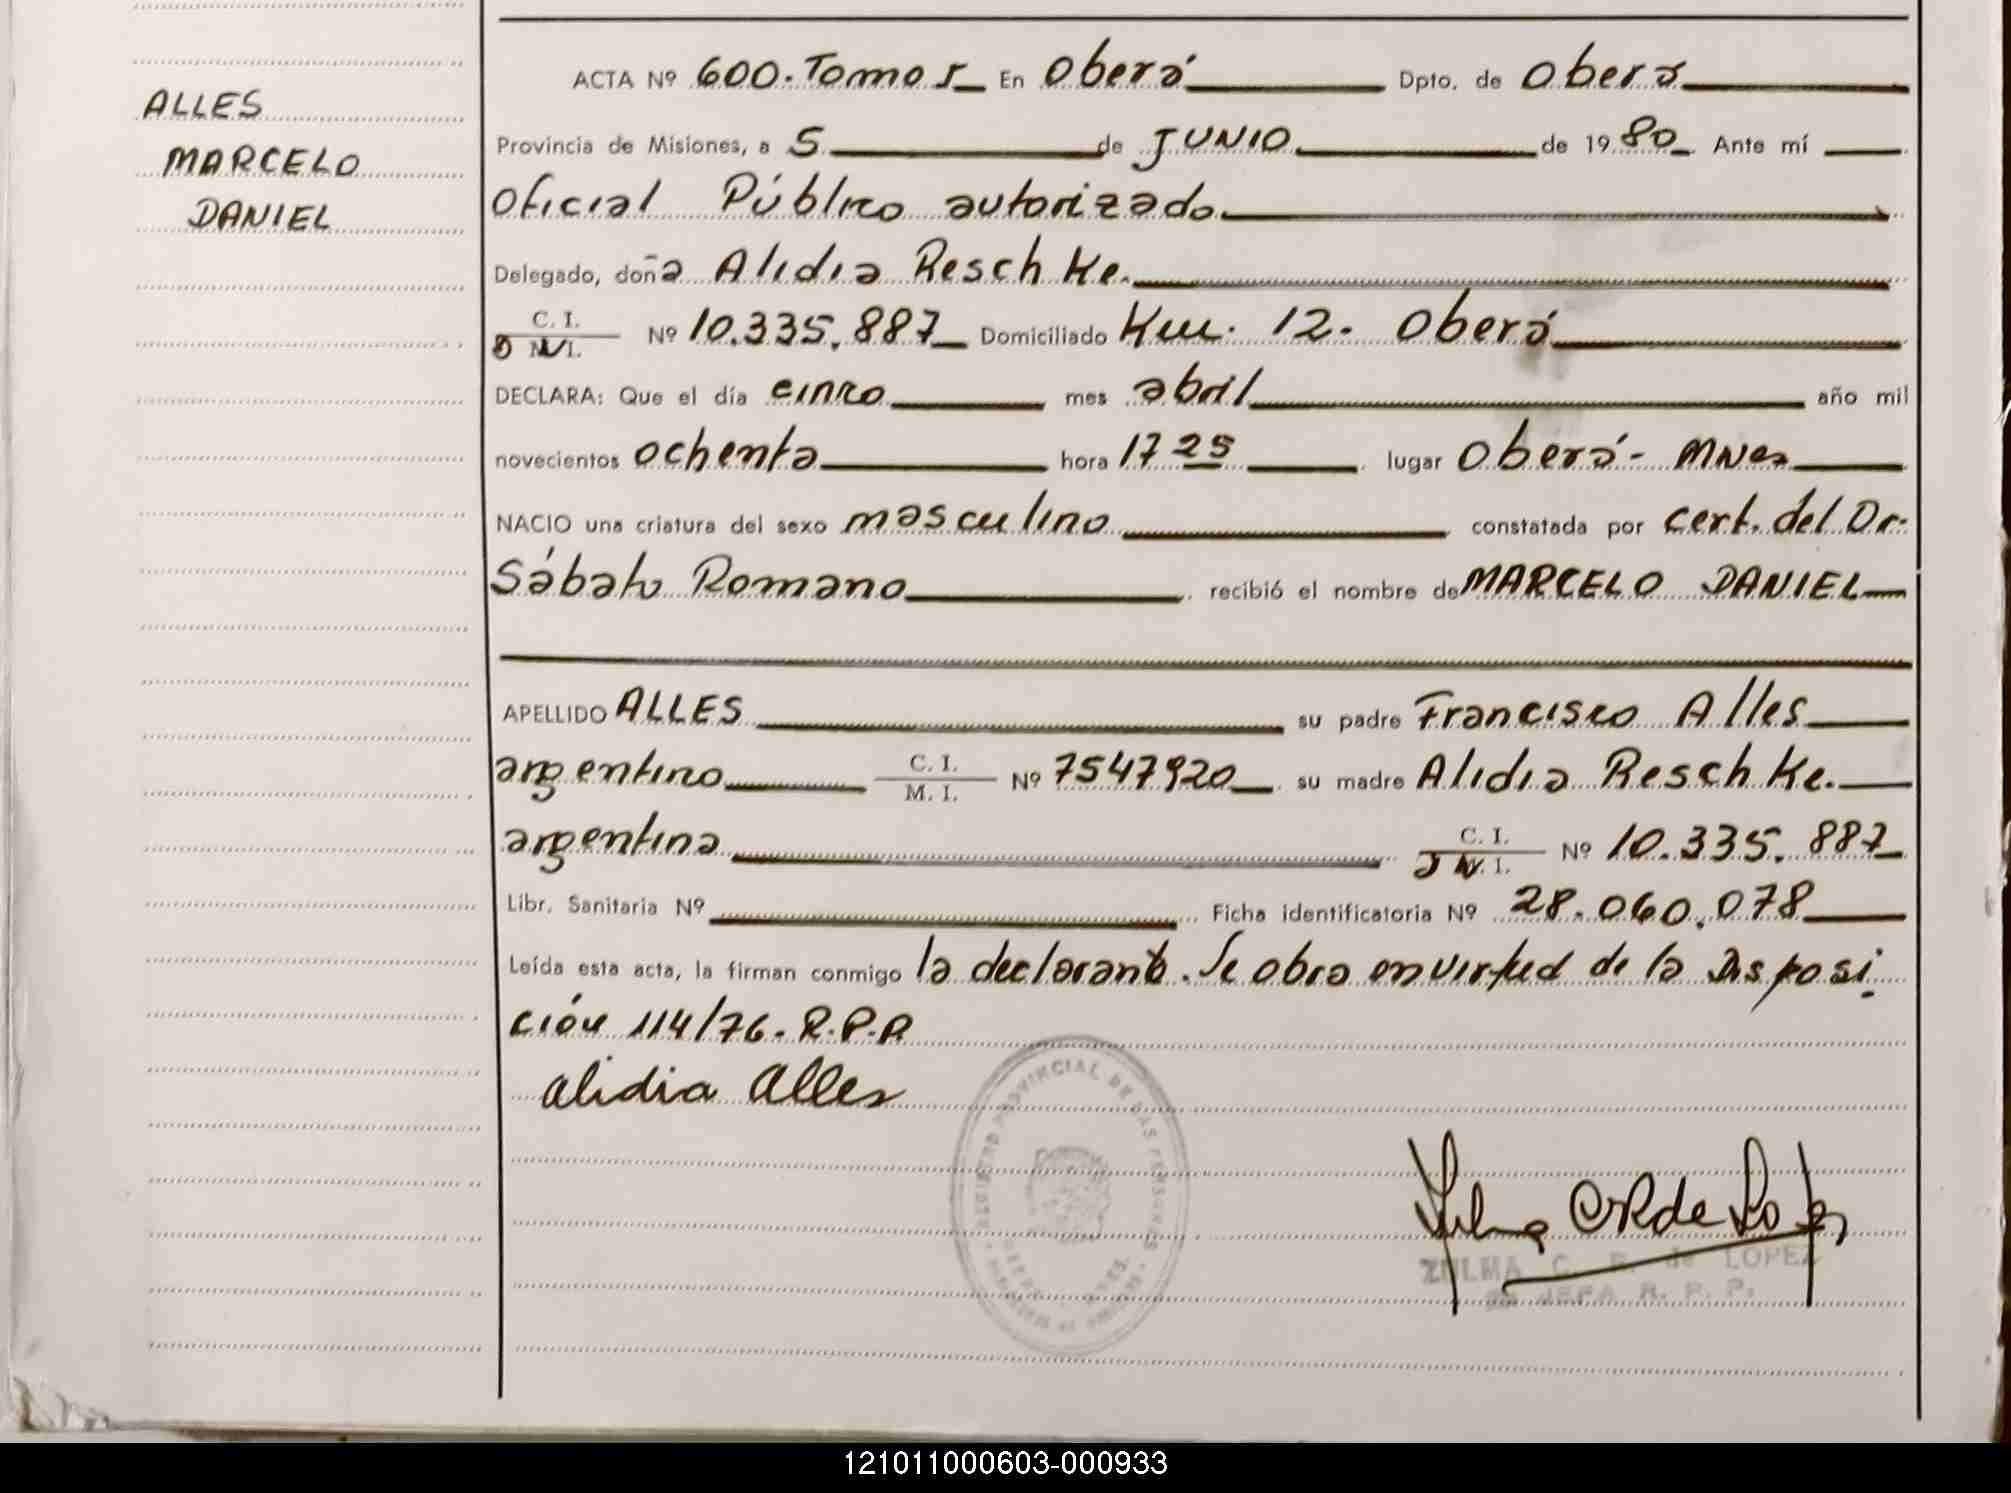 ALLES
MARCELO
DANIEL
ACTA Nº 600. Tomo 5 En Oberá Dpto. de Oberá
Provincia de Misiones, a 5 de JUNIO de 1980 Ante mí
Oficial Público autorizado
Delegado, doña Alidia Reschke.
C. I.
D N I. Nº 10.335.887 Domiciliado Km. 12. Oberá
DECLARA: Que el día cinco mes abril año mil
novecientos ochenta hora 17 25 lugar Oberá - Mnes
NACIO una criatura del sexo masculino constatada por cert. del Dr.
Sábato Romano recibió el nombre de MARCELO DANIEL
APELLIDO ALLES su padre Francisco Alles
argentino C. I. M. I. Nº 7547920 su madre Alidia Reschke.
argentina C. I. D N. I. Nº 10.335.887
Libr. Sanitaria Nº Ficha identificatoria Nº 28.060.078
Leída esta acta, la firman conmigo la declarante. Se obra en virtud de la Disposi
ción 114/76. R.P.P.
Alidia Alles
REGISTRO PROVINCIAL DE LAS PERSONAS
ZULMA C. R. de LOPEZ
JEFA R. P. P.
121011000603-000933